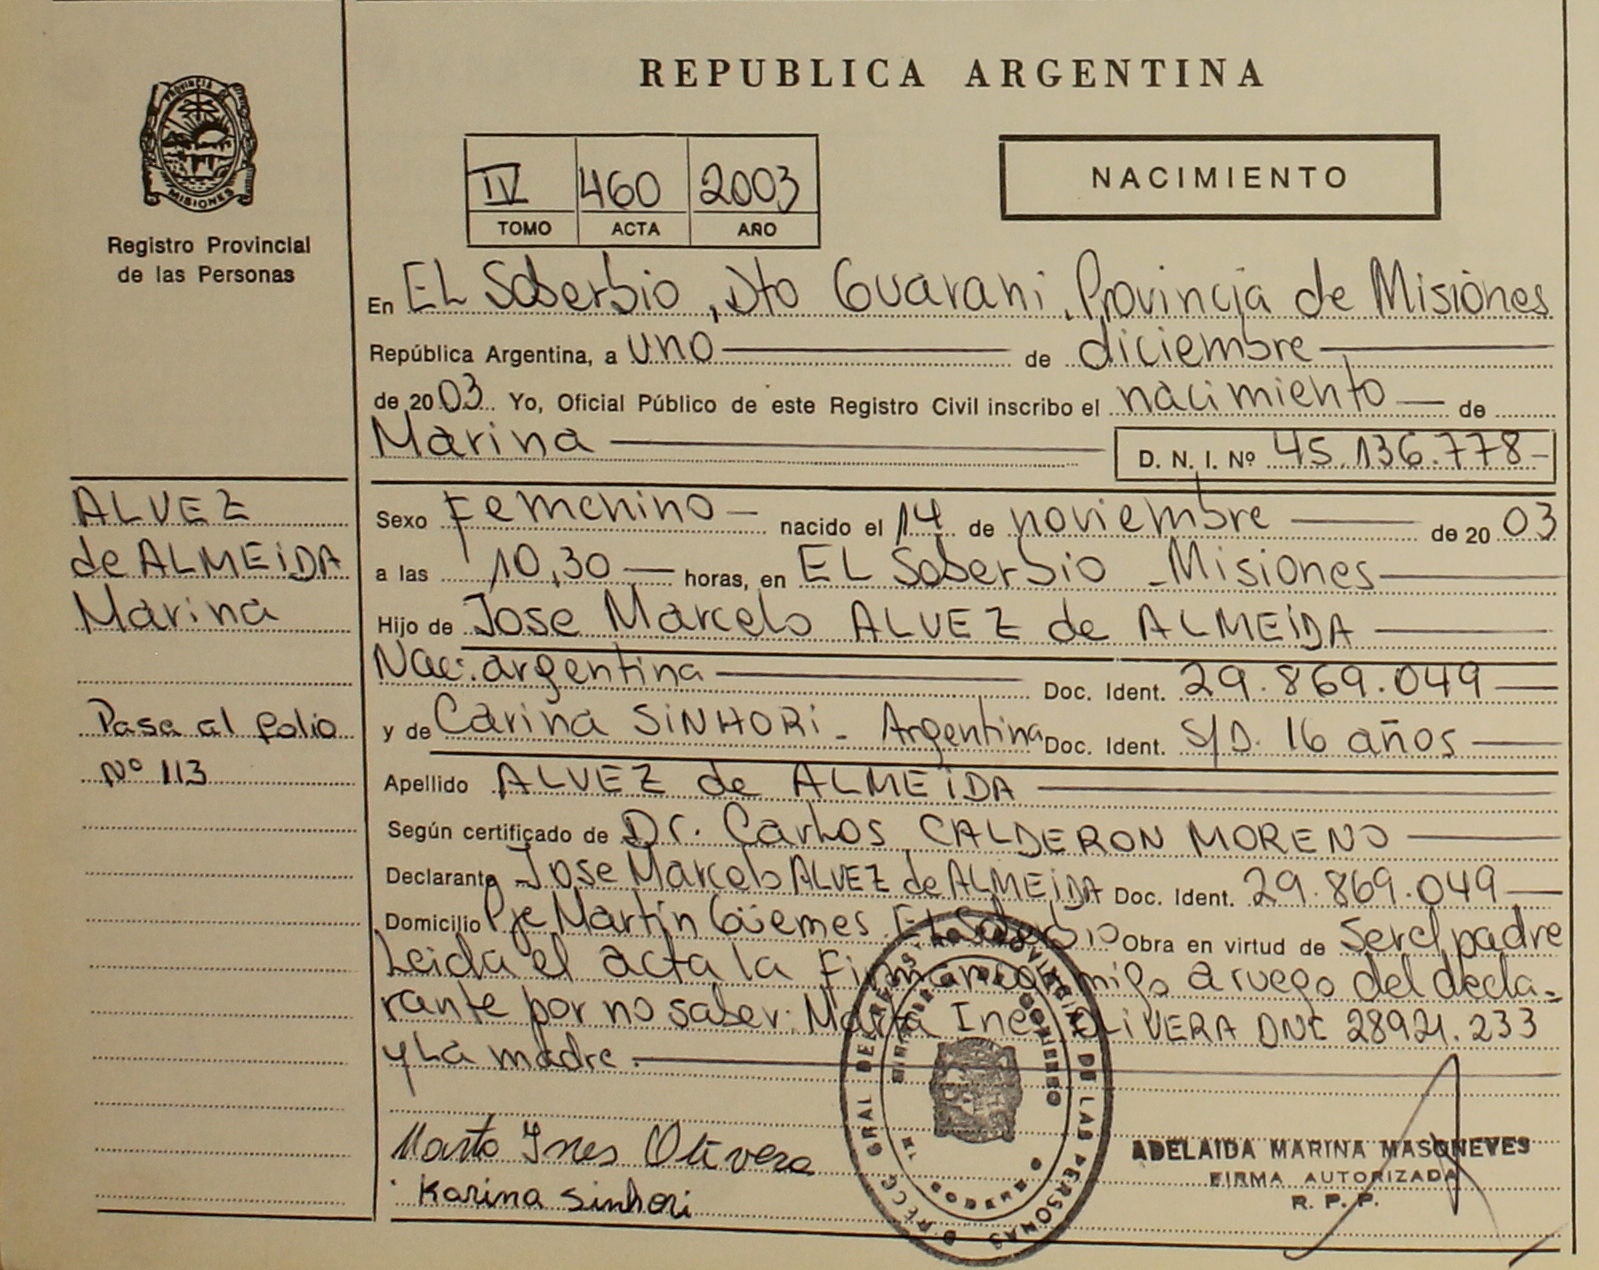 REPUBLICA ARGENTINA
PROVINCIA DE
MISIONES
Registro Provincial
de las Personas
IV 460 2003
TOMO ACTA AÑO
NACIMIENTO
En EL Soberbio, Dto Guarani. Provincia de Misiones
República Argentina, a uno de diciembre
de 2003 Yo, Oficial Público de este Registro Civil inscribo el nacimiento de
Marina D. N. I. Nº 45.136.778
Sexo Femenino nacido el 14 de noviembre de 2003
a las 10,30 horas, en EL Soberbio - Misiones
Hijo de Jose Marcelo ALVEZ de ALMEIDA
Nac: argentina Doc. Ident. 29.869.049
y de Carina SINHORI - Argentina Doc. Ident. S/D. 16 años
Apellido ALVEZ de ALMEIDA
Según certificado de Dr. Carlos CALDERON MORENO
Declarante Jose Marcelo ALVEZ de ALMEIDA Doc. Ident. 29.869.049
Domicilio Pje Martin Güemes. EL Soberbio Obra en virtud de Ser el padre
Leida el acta la Firman conmigo a ruego del decla-
rante por no saber: Marta Ines OLIVERA DNI 28921.233
y La madre.
ALVEZ
de ALMEIDA
Marina
Pasa al folio
Nº 113
Marta Ines Olivera
Karina Sinhori
ADELAIDA MARINA MASONEVES
FIRMA AUTORIZADA
R. P. P.
GRAL DE REG. PROVINCIAL DE LAS PERSONAS
MINISTERIO DE GOBIERNO